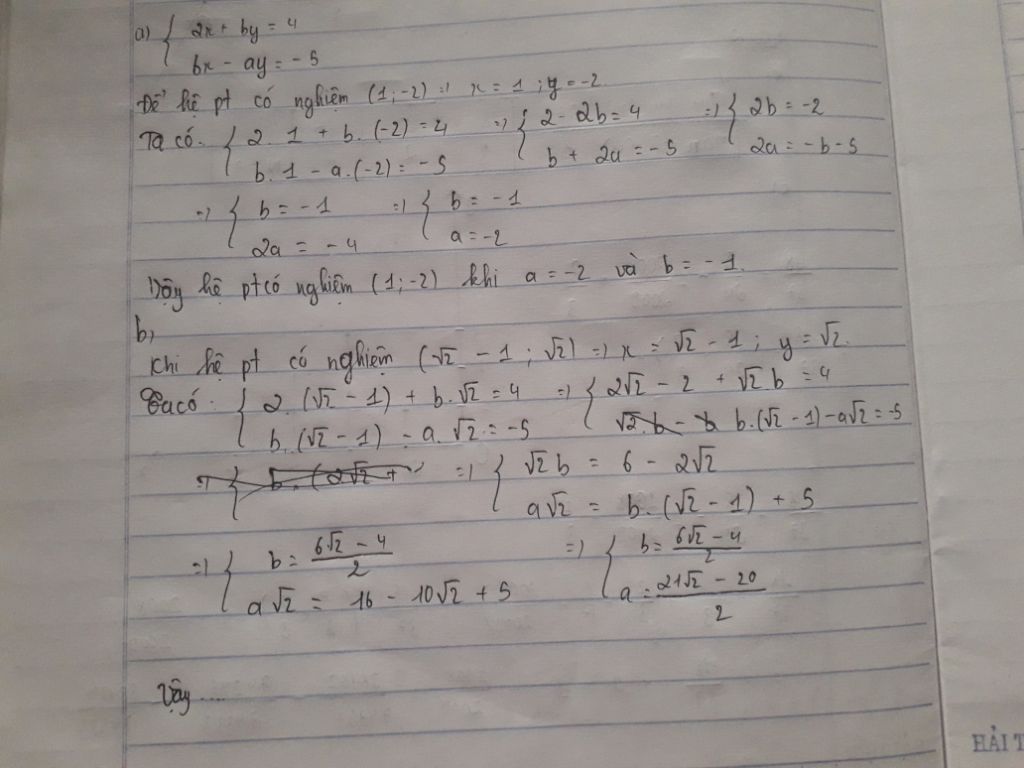 a) { 2x + by = 4
bx - ay = -5
Để hệ pt có nghiệm (1;-2) => x = 1 ; y = -2
Ta có. { 2. 1 + b. (-2) = 4 => { 2 - 2b = 4 => { 2b = -2
b. 1 - a. (-2) = -5 b + 2a = -5 2a = -b - 5
=> { b = -1 => { b = -1
2a = -4 a = -2
Vậy hệ pt có nghiệm (1;-2) khi a = -2 và b = -1.
b,
Khi hệ pt có nghiệm (√2 - 1 ; √2) => x = √2 - 1 ; y = √2.
Ta có : { 2. (√2 - 1) + b. √2 = 4 => { 2√2 - 2 + √2 b = 4
b. (√2 - 1) - a. √2 = -5 b. (√2 - 1) - a√2 = -5
=> { √2 b = 6 - 2√2
a√2 = b. (√2 - 1) + 5
=> { b = (6√2 - 4)/2 => { b = (6√2 - 4)/2
a√2 = 16 - 10√2 + 5 a = (21√2 - 20)/2
Vậy ....
HẢI T